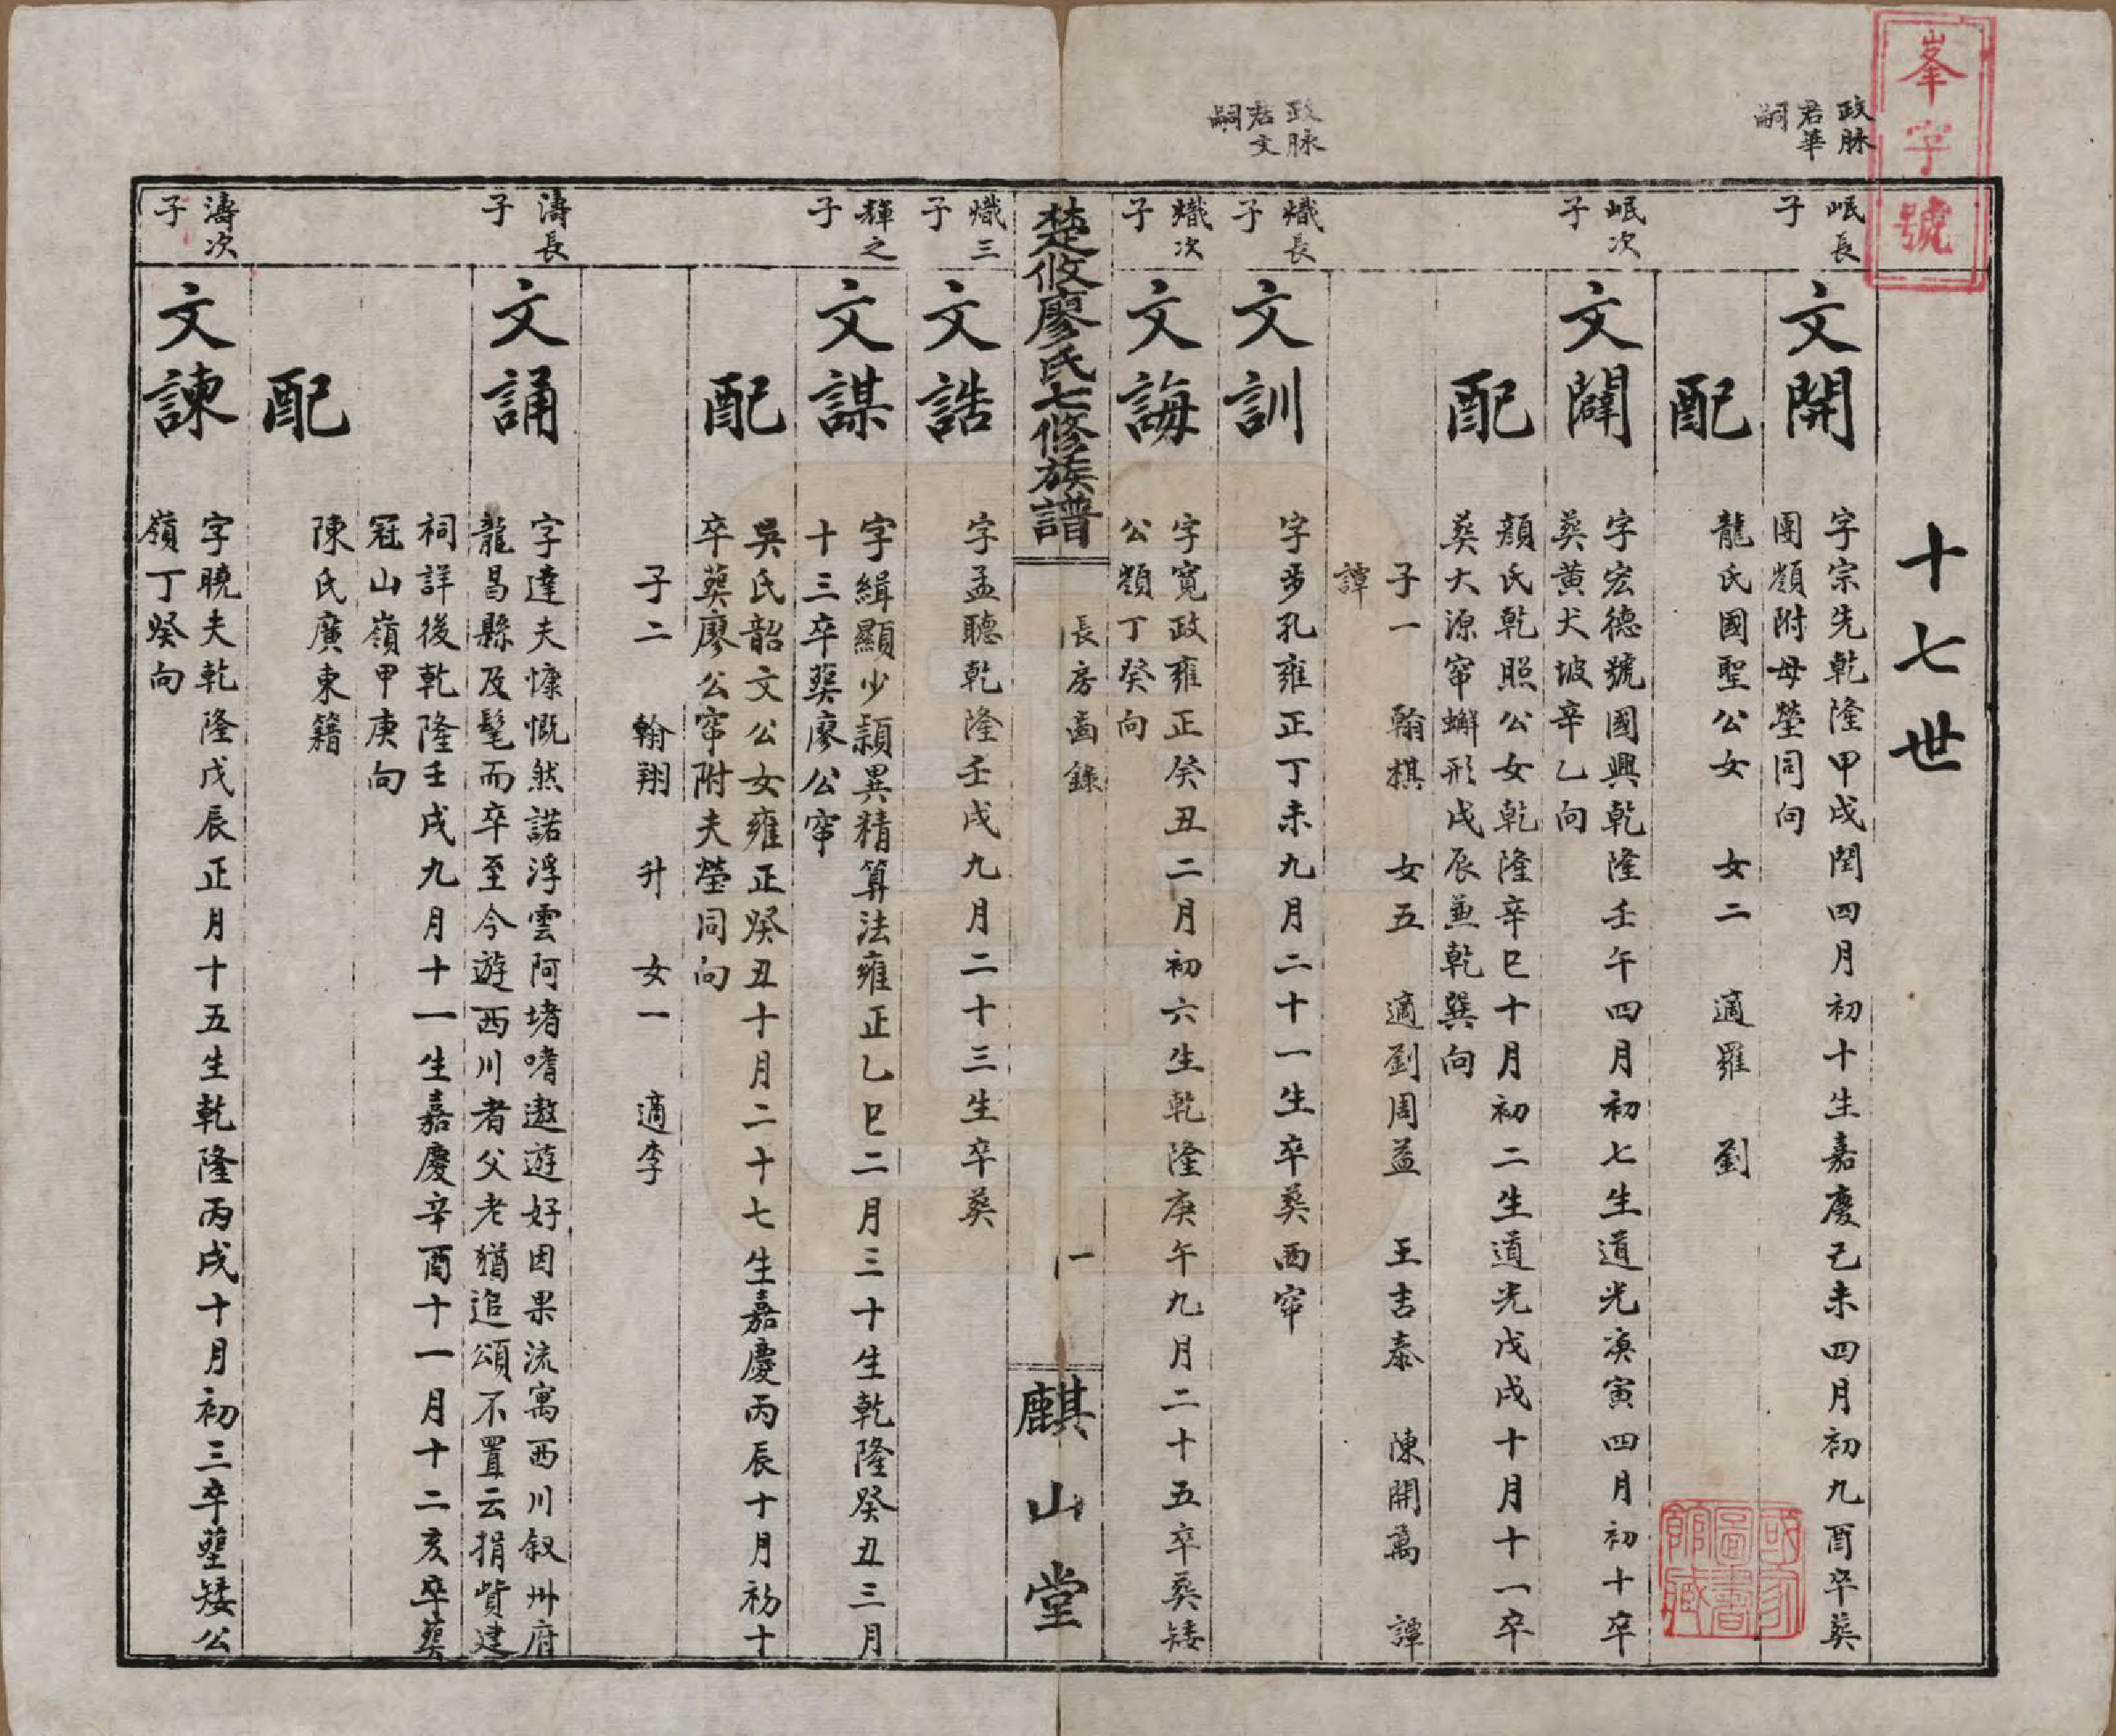 峯字號
十七世
政脉
君華
嗣
岷長
子
文開
字宗先乾隆甲戌閏四月初十生嘉慶己未四月初九酉卒葬
團嶺附母塋同向
配
龍氏國聖公女 女二 適羅 劉
岷次
子
文闢
字宏德號國興乾隆壬午四月初七生道光庚寅四月初十卒
葬黄犬坡辛乙向
配
顔氏乾照公女乾隆辛巳十月初二生道光戊戌十月十一卒
葬大源窂蠏形戌辰兼乾巽向
子一 翰棋 女五 適劉周益 王吉泰 陳開萬 譚
譚
政脉
君文
嗣
熾長
子
文訓
字步孔雍正丁未九月二十一生卒葬西窂
熾次
子
文誨
字寬政雍正癸丑二月初六生乾隆庚午九月二十五卒葬矮
公嶺丁癸向
楚攸廖氏七修族譜
長房齒錄
一
麒山堂
熾三
子
文誥
字孟聽乾隆壬戌九月二十三生卒葬
輝之
子
文謀
字緝顯少頴異精算法雍正乙巳二月三十生乾隆癸丑三月
十三卒葬廖公窂
配
吳氏韶文公女雍正癸丑十月二十七生嘉慶丙辰十月初十
卒葬廖公窂附夫塋同向
子二 翰翔 升 女一 適李
濤長
子
文誦
字達夫慷慨然諾浮雲阿堵嗜遨遊好因果流寓西川叙州府
龍昌縣及髦而卒至今遊西川者父老猶追頌不置云捐貲建
祠詳後乾隆壬戌九月十一生嘉慶辛酉十一月十二亥卒葬
冠山嶺甲庚向
配
陳氏廣東籍
濤次
子
文諫
字曉夫乾隆戊辰正月十五生乾隆丙戌十月初三卒塟矮公
嶺丁癸向
國家
圖書
館藏